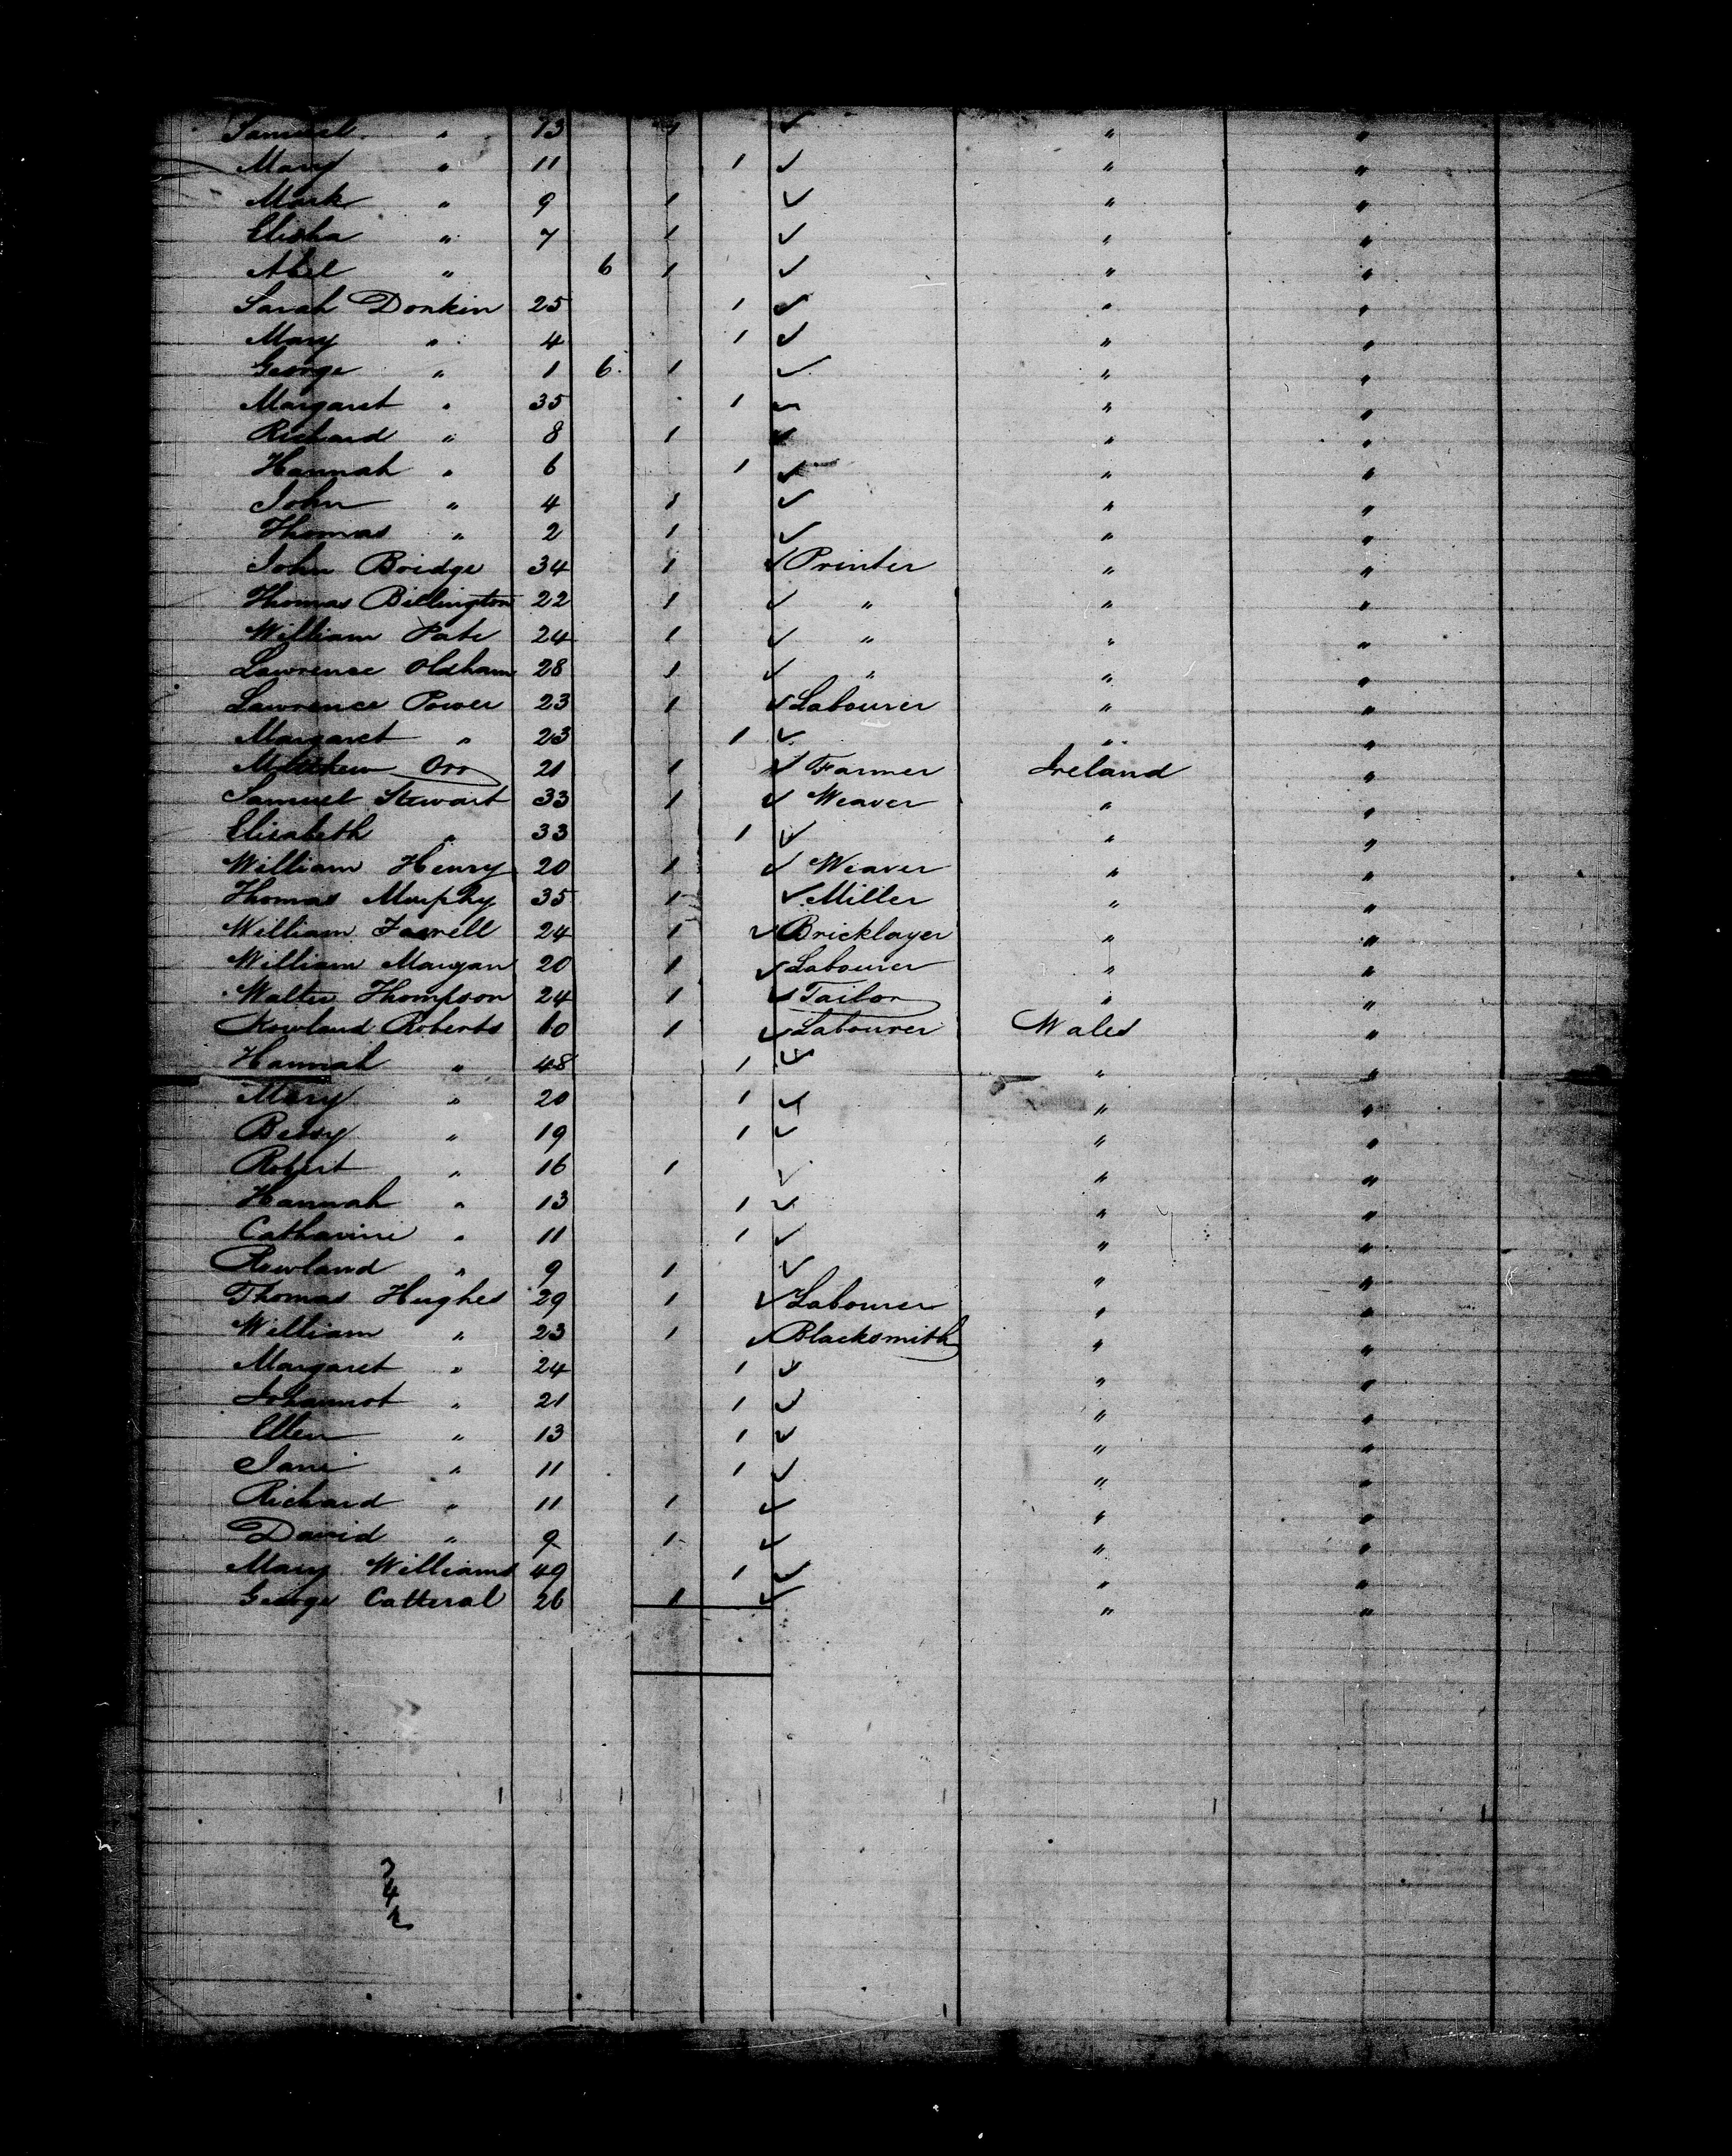 Samuel " 13 1 ✓ " "
Mary " 11 1 ✓ " "
Mark " 9 1 ✓ " "
Elisha " 7 1 ✓ " "
Abel " 6 1 ✓ " "
Sarah Donkin 25 1 ✓ " "
Mary " 4 1 ✓ " "
George " 1 6 1 ✓ " "
Margaret " 35 1 ✓ " "
Richard " 8 1 ✓ " "
Hannah " 6 1 ✓ " "
John " 4 1 ✓ " "
Thomas " 2 1 ✓ " "
John Bridge 34 1 ✓ Printer " "
Thomas Billington 22 1 ✓ " " "
William Pate 24 1 ✓ " " "
Lawrence Oldham 28 1 ✓ " " "
Lawrence Power 23 1 ✓ Labourer " "
Margaret " 23 1 ✓ " "
Matthew Orr 21 1 ✓ Farmer Ireland "
Samuel Stewart 33 1 ✓ Weaver " "
Elisabeth " 33 1 ✓ " "
William Henry 20 1 ✓ Weaver " "
Thomas Murphy 35 1 ✓ Miller " "
William Farrell 24 1 ✓ Bricklayer " "
William Morgan 20 1 ✓ Labourer " "
Walter Thompson 24 1 ✓ Tailor " "
Rowland Roberts 60 1 ✓ Labourer Wales "
Hannah " 48 1 ✓ " "
Mary " 20 1 ✓ " "
Betsy " 19 1 ✓ " "
Robert " 16 1 ✓ " "
Hannah " 13 1 ✓ " "
Catharine " 11 1 ✓ " "
Rowland " 9 1 ✓ " "
Thomas Hughes 29 1 ✓ Labourer " "
William " 23 1 ✓ Blacksmith " "
Margaret " 24 1 ✓ " "
" 21 1 ✓ " "
Ellen " 13 1 ✓ " "
Jane " 11 1 ✓ " "
Richard " 11 1 ✓ " "
David " 9 1 ✓ " "
Mary Williams 49 1 ✓ " "
George Catteral 26 1 ✓ " "